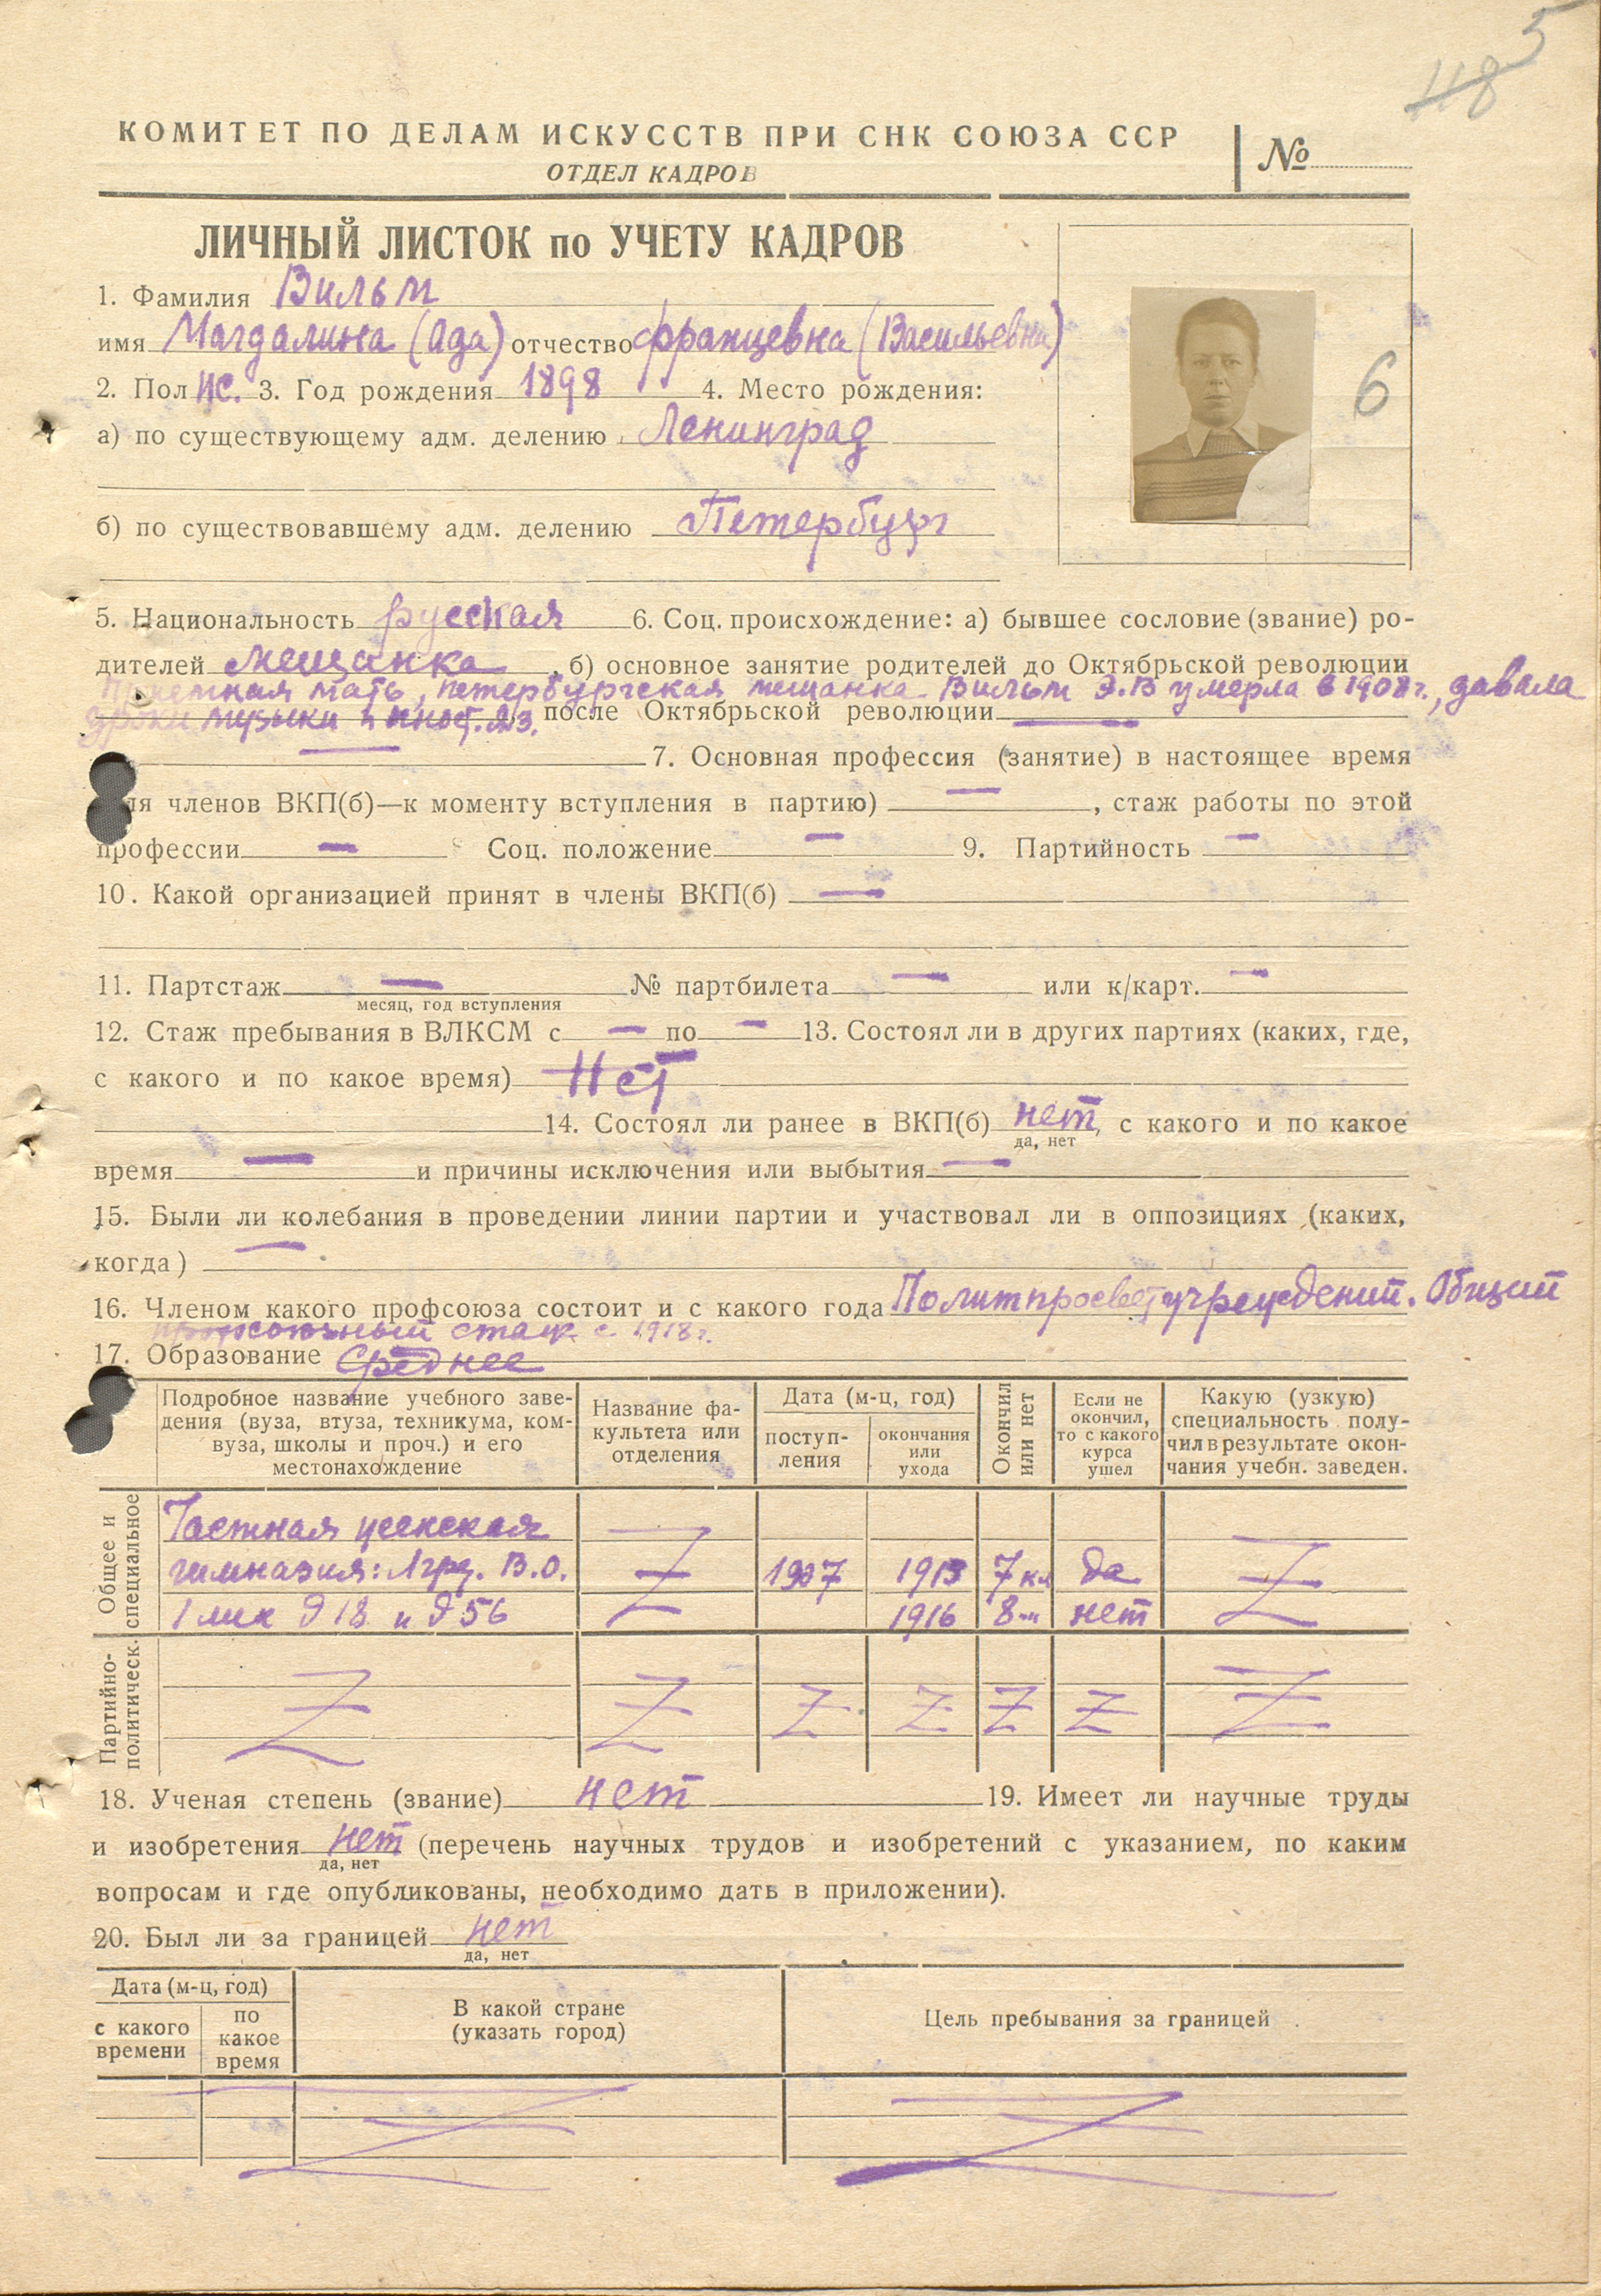 5
118
КОМИТЕТ ПО ДЕЛАМ ИСКУССТВ ПРИ СНК СОЮЗА ССР
№
ОТДЕЛ КАДРОВ
ЛИЧНЫЙ ЛИСТОК по УЧЕТУ КАДРОВ
1. Фамилия Вильм
имя Магдалина (Ада) отчество Францевна (Васильевна)
6
2. Пол ж. 3. Год рождения 1898 4. Место рождения:
а) по существующему адм. делению Ленинград
б) по существовавшему адм. делению Петербург
5. Национальность русская 6. Соц. происхождение: а) бывшее сословие (звание) ро-
дителей мещанка, б) основное занятие родителей до Октябрьской революции
Приемная мать, петербургская мещанка Вильм Э.В умерла в 1908 г., давала
уроки музыки и иност. яз. после Октябрьской революции —
— 7. Основная профессия (занятие) в настоящее время
ля членов ВКП(б)—к моменту вступления в партию) —, стаж работы по этой
профессии — Соц. положение — 9. Партийность —
10. Какой организацией принят в члены ВКП(б) —
11. Партстаж — № партбилета — или к/карт. —
месяц, год вступления
12. Стаж пребывания в ВЛКСМ с — по — 13. Состоял ли в других партиях (каких, где,
с какого и по какое время) Нет
14. Состоял ли ранее в ВКП(б) нет, с какого и по какое
да, нет
время — и причины исключения или выбытия —
15. Были ли колебания в проведении линии партии и участвовал ли в оппозициях (каких,
когда) —
16. Членом какого профсоюза состоит и с какого года Политпросветучреждений. Общий
профсоюзный стаж с 1918 г.
17. Образование Среднее
Подробное название учебного заве-
дения (вуза, втуза, техникума, ком-
вуза, школы и проч.) и его
местонахождение
Название фа-
культета или
отделения
Дата (м-ц, год)
поступ-
ления
окончания
или
ухода
Окончил
или нет
Если не
окончил,
то с какого
курса
ушел
Какую (узкую)
специальность полу-
чил в результате окон-
чания учебн. заведен.
Общее и
специальное
Частная женская
гимназия: Лгрд. В.О. 1907 1913 7 кл да
1 лин д 18 и д 56 1916 8-й нет
Партийно-
политическ.
18. Ученая степень (звание) нет 19. Имеет ли научные труды
и изобретения нет (перечень научных трудов и изобретений с указанием, по каким
да, нет
вопросам и где опубликованы, необходимо дать в приложении).
20. Был ли за границей нет
да, нет
Дата (м-ц, год)
с какого
времени
по
какое
время
В какой стране
(указать город)
Цель пребывания за границей